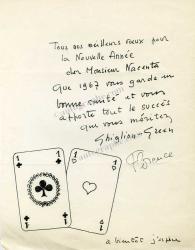 Tous mes meilleurs vœux pour
la Nouvelle Année
cher Monsieur Nacenta
Que 1967 vous garde en
bonne santé et vous
apporte tout le succès
que vous méritez
Ghiglion-Green
France
1 1
1 1
a bientôt j'espère